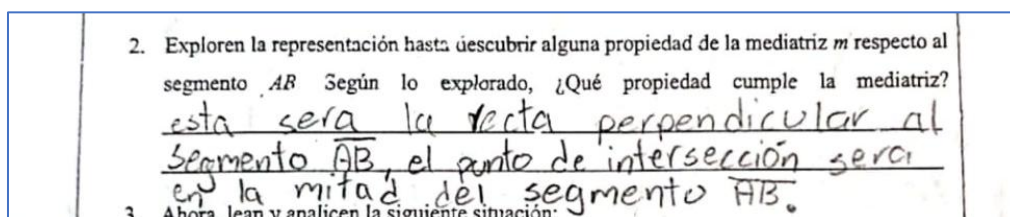 2. Exploren la representación hasta descubrir alguna propiedad de la mediatriz m respecto al
segmento AB Según lo explorado, ¿Qué propiedad cumple la mediatriz?
esta sera la recta perpendicular al
segmento AB, el punto de intersección sera
en la mitad del segmento AB.
3. Ahora, lean y analicen la siguiente situación: